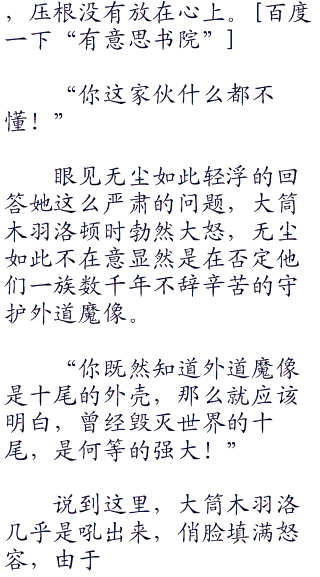 ，压根没有放在心上。[百度
一下“有意思书院”]
“你这家伙什么都不
懂！”
眼见无尘如此轻浮的回
答她这么严肃的问题，大筒
木羽洛顿时勃然大怒，无尘
如此不在意显然是在否定他
们一族数千年不辞辛苦的守
护外道魔像。
“你既然知道外道魔像
是十尾的外壳，那么就应该
明白，曾经毁灭世界的十
尾，是何等的强大！”
说到这里，大筒木羽洛
几乎是吼出来，俏脸填满怒
容，由于